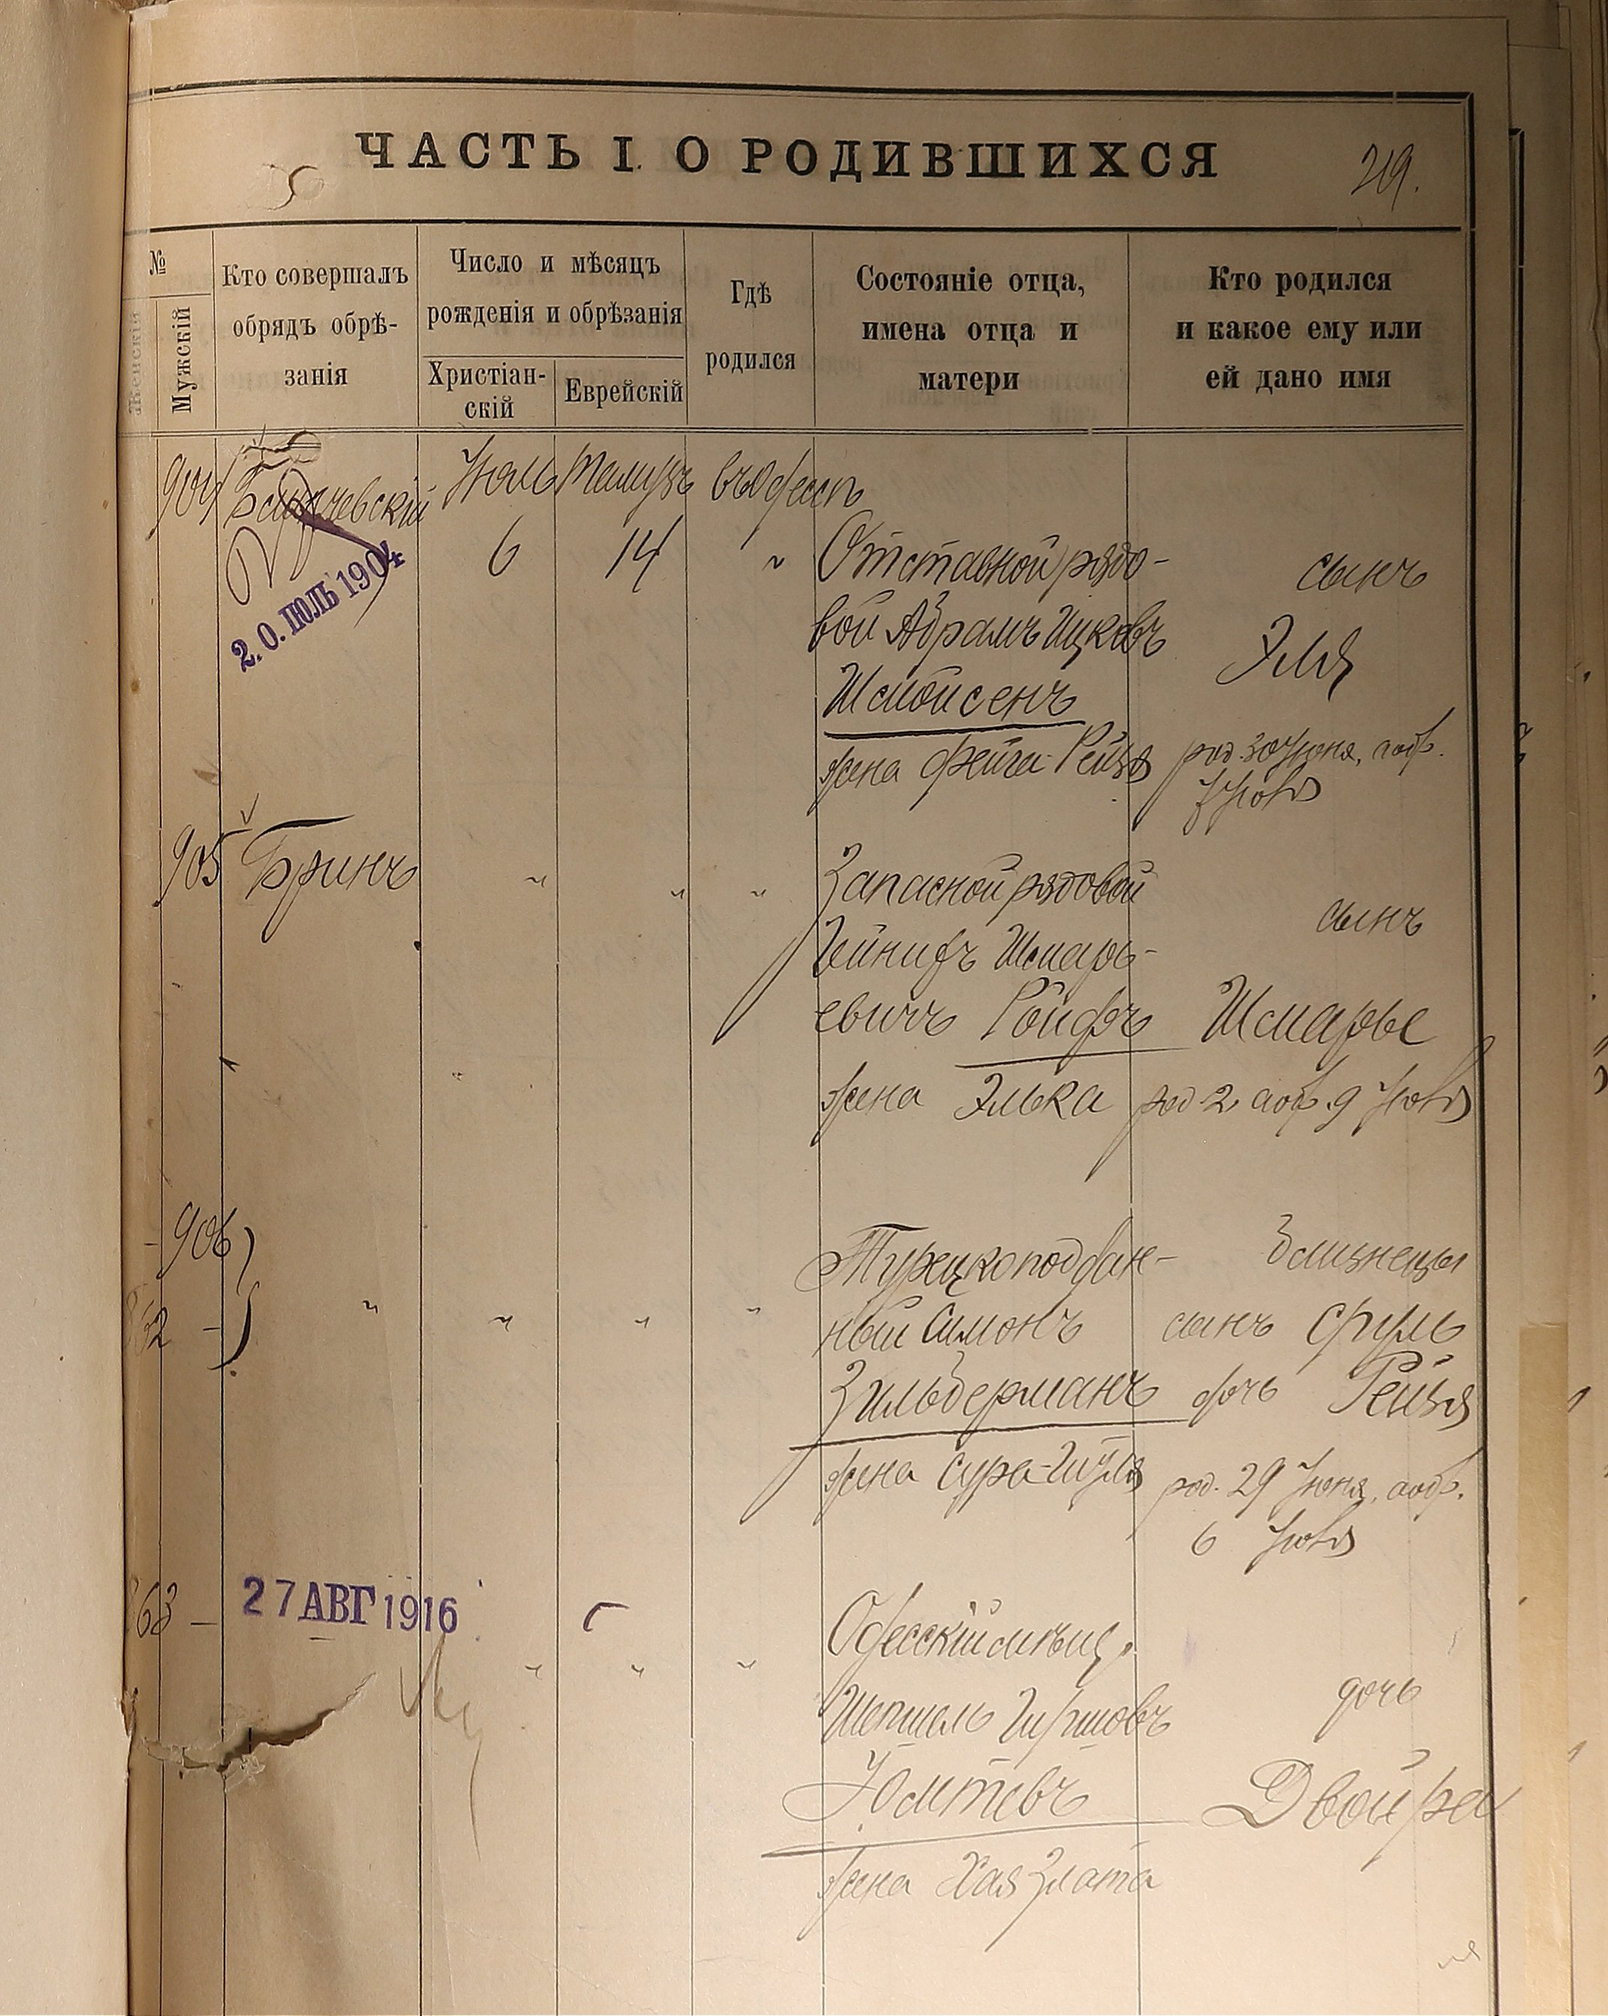 ЧАСТЬ I. О РОДИВШИХСЯ
219.
№
Женскій
Мужскій
Кто совершалъ
обрядъ обрѣ-
занія
Число и мѣсяцъ
рожденія и обрѣзанія
Христіан-
скій
Еврейскій
Гдѣ
родился
Состояніе отца,
имена отца и
матери
Кто родился
и какое ему или
ей дано имя
904 Іюль Тамузъ въ Одессѣ
6 14 " Отставной рядо-
вой Абрамъ Ицковъ
Шмойсенъ
жена Фейга-Рейзя
сынъ
Эля
род. 30 Іюня, а обр.
7 Іюля
2.0. ІЮЛЬ 1904
905 Бринъ " " " Запасной рядовой
Гейнихъ Шмарь-
евичъ Ройфъ
жена Элька
сынъ
Шмарье
род. 2 а обр. 9 Іюля
906
862 - " " " "
Турецкоподдан-
ный Симонъ
Зильберманъ
жена Сура-
близнецы
сынъ Сруль
дочь Рейзя
род. 29 Іюня, а обр.
6 Іюля
863 -
27 АВГ 1916
" " "
Одесскій мѣщ.
Шепшель Гиршовъ
Юмтовъ
жена Хая Злата
дочь
Двойра